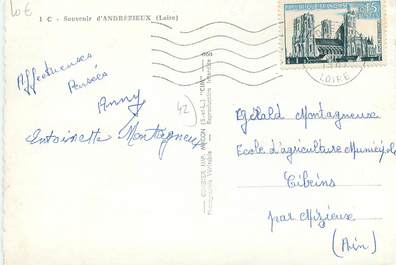 10€
1 C - Souvenir d'ANDREZIEUX (Loire)
Affectueuses
Pensées
Anny
Antoinette Montagneux
42
COMBIER IMP. MACON (S.-et-L.) "CIM"
Photographie Véritable - Reproduction Interdite
REPUBLIQUE FRANÇAISE
0,15
POSTES
LOIRE
Gérald Montagneux
Ecole d'agriculture Municipale
Cibeins
par Mizérieux
(Ain)